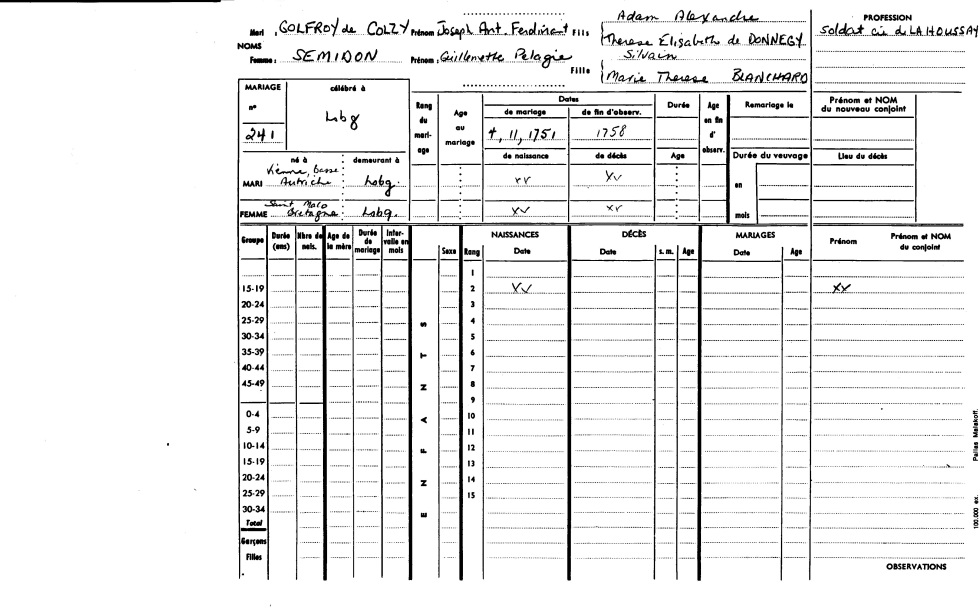 Adam Alexandre
PROFESSION
Mari : GOLFROY de COLZY Prénom Joseph Ant. Ferdinant Fils
Therese Elisabeth de DONNEGY
Soldat cie de LAHOUSSAY
NOMS
Silvain
Femme : SEMIDON Prénom : Guillemette Pelagie Fille
Marie Therese BLANCHARD
MARIAGE célébré à
n°
241
Lobg
Rang du mari-age
Age au mariage
Dates
de mariage
de fin d'observ.
4, 11, 1751
1758
de naissance
de décès
Durée
Age
Age en fin d' observ.
Remariage le
Durée du veuvage
en
mois
Prénom et NOM du nouveau conjoint
Lieu du décès
né à demeurant à
Vienne, basse
MARI Autriche Lobg. xv xv
Saint Malo
FEMME Bretagne Lobg. xv xv
Groupe
Durée (ans)
Nbre de nais.
Age de la mère
Durée de mariage
Inter-valle en mois
ENFANTS
Sexe
Rang
NAISSANCES
Date
DÉCÈS
Date
s. m.
Age
MARIAGES
Date
Age
Prénom
Prénom et NOM du conjoint
1
15-19 2 xv xx
20-24 3
25-29 4
30-34 5
35-39 6
40-44 7
45-49 8
9
0-4 10
5-9 11
10-14 12
15-19 13
20-24 14
25-29 15
30-34
Total
Garçons
Filles
OBSERVATIONS
100.000 ex. Pallas Malakoff.